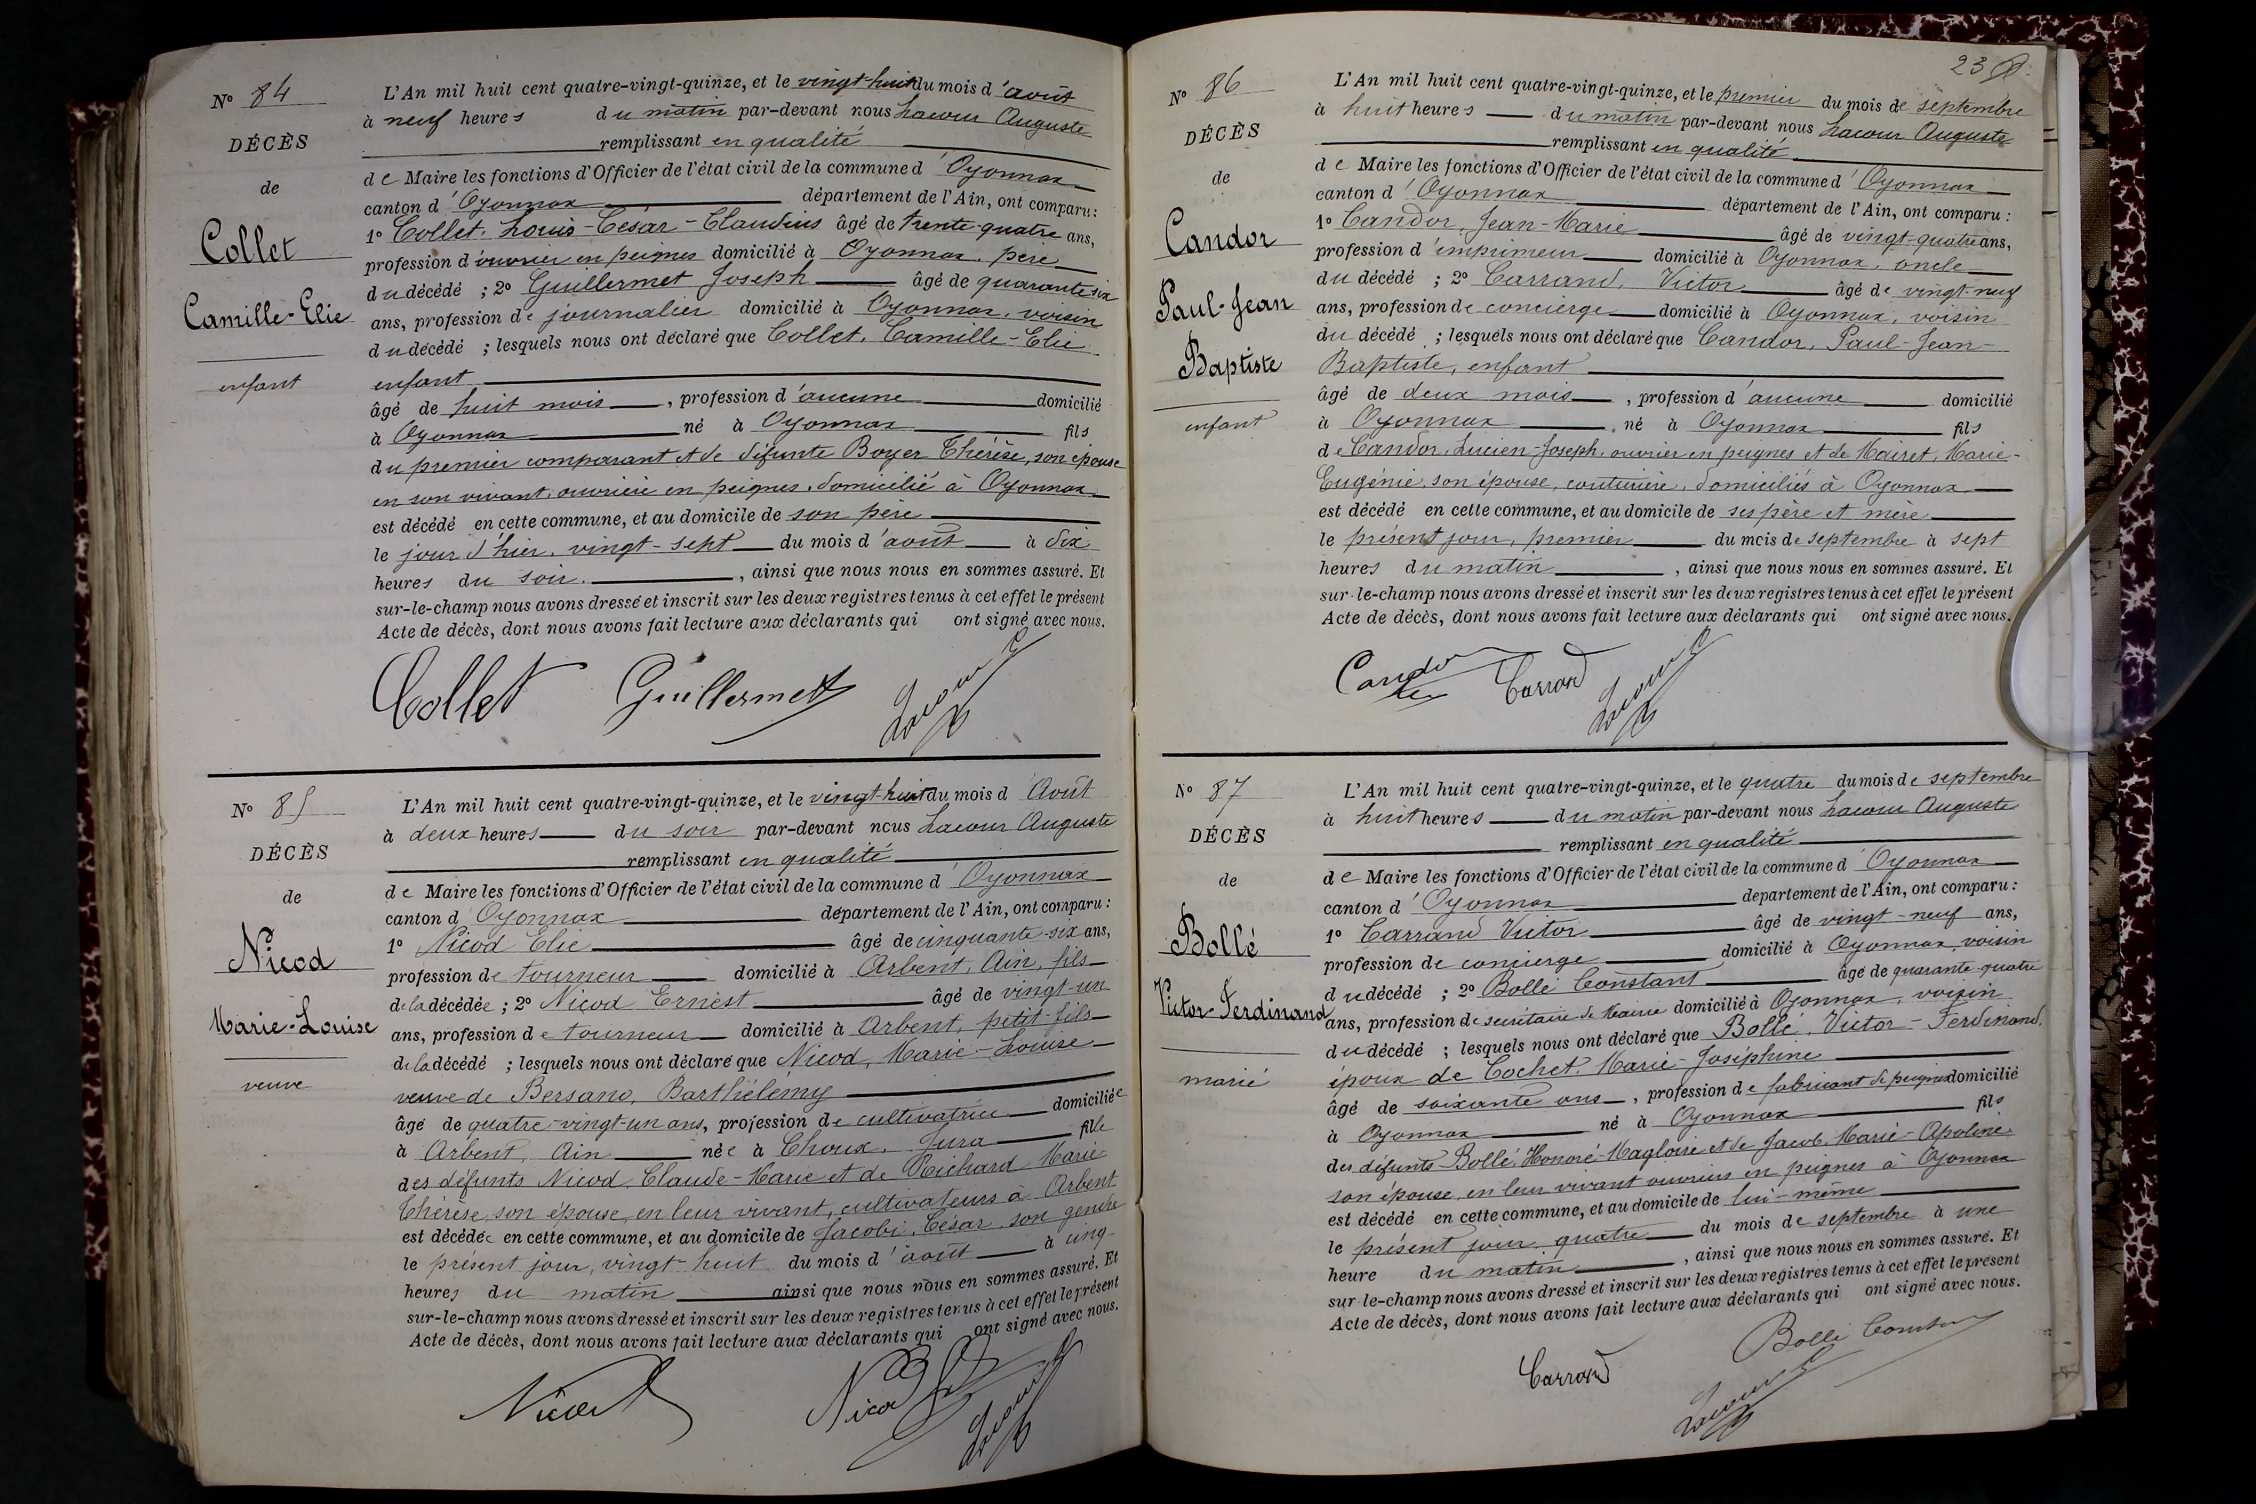 Nº 84
DÉCÈS
de
Collet
Camille-Elie
enfant
L'An mil huit cent quatre-vingt-quinze, et le vingt-huit du mois d'août
à neuf heures du matin par-devant nous Lacour Auguste
remplissant en qualité
de Maire les fonctions d'Officier de l'état civil de la commune d'Oyonnax
canton d'Oyonnax département de l'Ain, ont comparu :
1º Collet, Louis-César-Claudius âgé de trente-quatre ans,
profession d'ouvrier en peignes domicilié à Oyonnax, père
du décédé ; 2º Guillermet Joseph âgé de quarante six
ans, profession de journalier domicilié à Oyonnax, voisin
du décédé ; lesquels nous ont déclaré que Collet, Camille-Elie
enfant
âgé de huit mois, profession d'aucune domicilié
à Oyonnax né à Oyonnax fils
du premier comparant et de défunte Boyer Thérèse, son épouse
en son vivant, ouvrière en peignes, domicilié à Oyonnax
est décédé en cette commune, et au domicile de son père
le jour d'hier, vingt-sept du mois d'août à dix
heures du soir, ainsi que nous nous en sommes assuré. Et
sur-le-champ nous avons dressé et inscrit sur les deux registres tenus à cet effet le présent
Acte de décès, dont nous avons fait lecture aux déclarants qui ont signé avec nous.
Collet Guillermet Lacour
Nº 85
DÉCÈS
de
Nicod
Marie-Louise
veuve
L'An mil huit cent quatre-vingt-quinze, et le vingt-huit du mois d'Août
à deux heures du soir par-devant nous Lacour Auguste
remplissant en qualité
de Maire les fonctions d'Officier de l'état civil de la commune d'Oyonnax
canton d'Oyonnax département de l'Ain, ont comparu :
1º Nicod Elie âgé de cinquante-six ans,
profession de tourneur domicilié à Arbent, Ain, fils
de la décédée ; 2º Nicod Ernest âgé de vingt-un
ans, profession de tourneur domicilié à Arbent, petit-fils
de la décédé ; lesquels nous ont déclaré que Nicod, Marie-Louise
veuve de Bersano, Barthélemy
âgé de quatre-vingt-un ans, profession de cultivatrice domiciliée
à Arbent, Ain née à Choux, Jura fille
des défunts Nicod, Claude-Marie et de Richard Marie
Thérèse, son épouse, en leur vivant, cultivateurs à Arbent
est décédée en cette commune, et au domicile de Jacobi, César, son gendre
le présent jour, vingt-huit du mois d'août à cinq
heures du matin ainsi que nous nous en sommes assuré. Et
sur-le-champ nous avons dressé et inscrit sur les deux registres tenus à cet effet le présent
Acte de décès, dont nous avons fait lecture aux déclarants qui ont signé avec nous.
Nicod Nicod Lacour
23
Nº 86
DÉCÈS
de
Candor
Paul-Jean
Baptiste
enfant
L'An mil huit cent quatre-vingt-quinze, et le premier du mois de septembre
à huit heures du matin par-devant nous Lacour Auguste
remplissant en qualité
de Maire les fonctions d'Officier de l'état civil de la commune d'Oyonnax
canton d'Oyonnax département de l'Ain, ont comparu :
1º Candor, Jean-Marie âgé de vingt-quatre ans,
profession d'imprimeur domicilié à Oyonnax, oncle
du décédé ; 2º Carrand, Victor âgé de vingt-neuf
ans, profession de concierge domicilié à Oyonnax, voisin
du décédé ; lesquels nous ont déclaré que Candor, Paul-Jean-
Baptiste, enfant
âgé de deux mois, profession d'aucune domicilié
à Oyonnax, né à Oyonnax fils
de Candor, Lucien-Joseph, ouvrier en peignes et de Mairet, Marie-
Eugénie, son épouse, couturière, domiciliés à Oyonnax
est décédé en cette commune, et au domicile de ses père et mère
le présent jour, premier du mois de septembre à sept
heures du matin, ainsi que nous nous en sommes assuré. Et
sur-le-champ nous avons dressé et inscrit sur les deux registres tenus à cet effet le présent
Acte de décès, dont nous avons fait lecture aux déclarants qui ont signé avec nous.
Candor Carrand Lacour
Nº 87
DÉCÈS
de
Bollé
Victor-Ferdinand
marié
L'An mil huit cent quatre-vingt-quinze, et le quatre du mois de septembre
à huit heures du matin par-devant nous Lacour Auguste
remplissant en qualité
de Maire les fonctions d'Officier de l'état civil de la commune d'Oyonnax
canton d'Oyonnax département de l'Ain, ont comparu :
1º Carrand Victor âgé de vingt-neuf ans,
profession de concierge domicilié à Oyonnax, voisin
du décédé ; 2º Bollé Constant âgé de quarante-quatre
ans, profession de secrétaire de Mairie domicilié à Oyonnax, voisin
du décédé ; lesquels nous ont déclaré que Bollé, Victor-Ferdinand,
époux de Cochet, Marie-Joséphine
âgé de soixante ans, profession de fabricant de peignes domicilié
à Oyonnax né à Oyonnax fils
des défunts Bollé, Honoré-Magloire et de Jacob, Marie-Apoline,
son épouse, en leur vivant ouvriers en peignes à Oyonnax
est décédé en cette commune, et au domicile de lui-même
le présent jour, quatre du mois de septembre à une
heure du matin, ainsi que nous nous en sommes assuré. Et
sur-le-champ nous avons dressé et inscrit sur les deux registres tenus à cet effet le présent
Acte de décès, dont nous avons fait lecture aux déclarants qui ont signé avec nous.
Carrand Bollé Constant Lacour